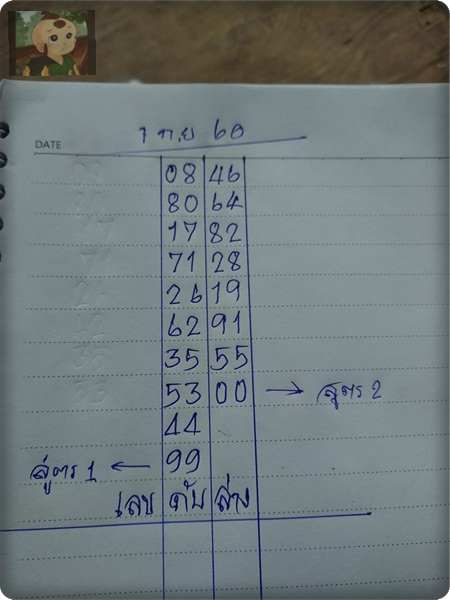 DATE 1 ก.ย 60
08 46
80 64
17 82
71 28
26 19
62 91
35 55
53 00 → สูตร 2
44
สูตร 1 ← 99
เลข ดับ ล่าง